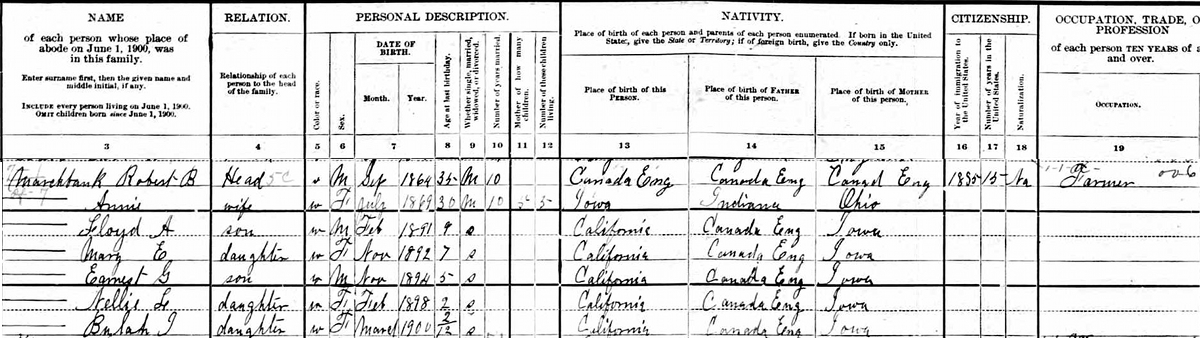 NAME
of each person whose place of
abode on June 1, 1900, was
in this family.
Enter surname first, then the given name and
middle initial, if any.
INCLUDE every person living on June 1, 1900.
OMIT children born since June 1, 1900.
3
RELATION.
Relationship of each
person to the head
of the family.
4
PERSONAL DESCRIPTION.
Color or race.
5
Sex.
6
DATE OF
BIRTH.
Month.
Year.
7
Age at last birthday.
8
Whether single, married,
widowed, or divorced.
9
Number of years married.
10
Mother of how many
children.
11
Number of these children
living.
12
NATIVITY.
Place of birth of each person and parents of each person enumerated. If born in the United
States, give the State or Territory; if of foreign birth, give the Country only.
Place of birth of this
PERSON.
13
Place of birth of FATHER
of this person.
14
Place of birth of MOTHER
of this person.
15
CITIZENSHIP.
Year of immigration to
the United States.
16
Number of years in the
United States.
17
Naturalization.
18
OCCUPATION, TRADE, O
PROFESSION
of each person TEN YEARS of a
and over.
OCCUPATION.
19
Marchbank Robert B Head w M Sep 1864 35 M 10 Canada Eng Canada Eng Canad Eng 1885 15 Na Farmer
Annie wife w F July 1869 30 M 10 5 5 Iowa Indiana Ohio
Floyd A son w M Feb 1891 9 s California Canada Eng Iowa
Mary E daughter w F Nov 1892 7 s California Canada Eng Iowa
Earnest G son w M Nov 1894 5 s California Canada Eng Iowa
Nellie L daughter w F Feb 1898 2 s California Canada Eng Iowa
Bulah I daughter w F March 1900 2/12 s California Canada Eng Iowa